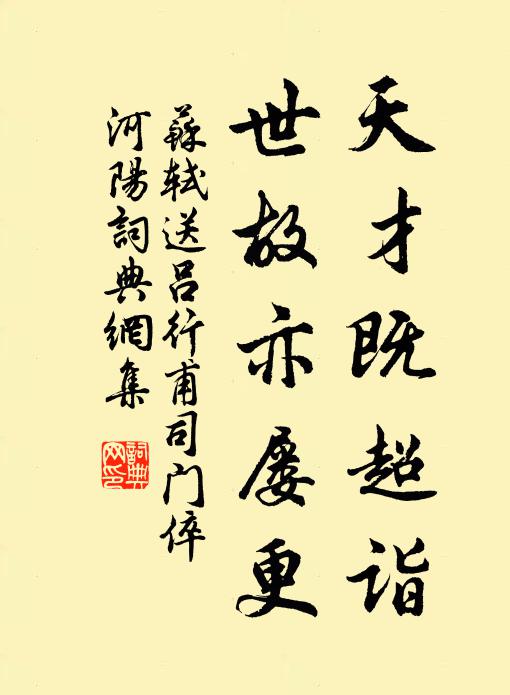 天才既超詣
世故亦屢更
蘇軾送呂行甫司門倅
河陽詞典網集
詞典
网印